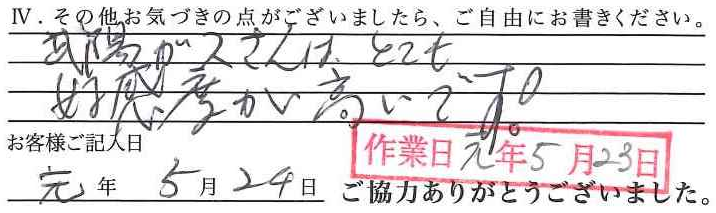 Ⅳ．その他お気づきの点がございましたら、ご自由にお書きください。
武陽ガスさんは、とても
好感度が高いです。
お客様ご記入日
作業日 元年5月23日
元年 5月24日
ご協力ありがとうございました。